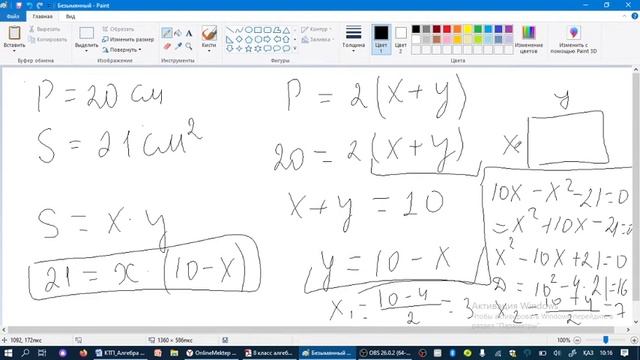 Безымянный - Paint
Файл Главная Вид
Вставить
Вырезать
Копировать
Буфер обмена
Выделить
Обрезать
Изменить размер
Повернуть
Изображение
Кисти
Инструменты
Контур
Заливка
Фигуры
Толщина
Цвет 1
Цвет 2
Цвета
Изменение цветов
Изменить с помощью Paint 3D
P = 20 см
S = 21 см²
S = x · y
21 = x · (10 - x)
P = 2 (x + y)
20 = 2 (x + y)
x + y = 10
y = 10 - x
x₁ = (10 - 4)/2 = 3
y
x
10x - x² - 21 = 0
= x² + 10x - 21 = 0
x² - 10x + 21 = 0
D = 10² - 4 · 21 = 16
x₂ = (10 + 4)/2 = 7
Активация Windows
Чтобы активировать Windows, перейдите в раздел "Параметры".
1092, 172пкс
1360 × 586пкс
100%
КТП_Алгебра
OnlineMektep
8 класс алгеб
Безымянный
OBS 26.0.2 (64-
ҚАЗ
10:16